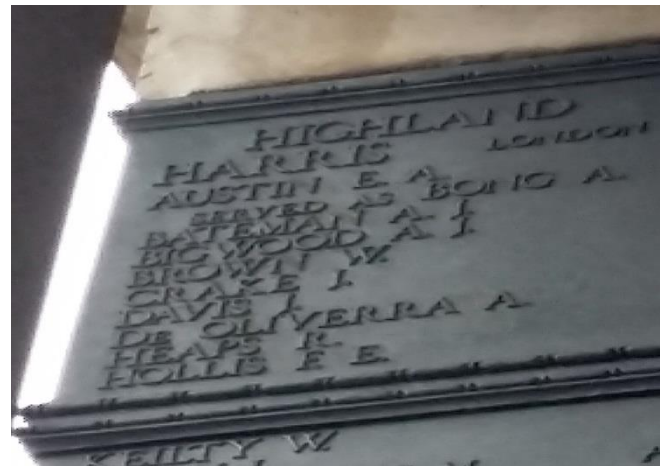 HIGHLAND
HARRIS LONDON
AUSTIN E. A.
SERVED AS BONO A.
BATEMAN A. J.
BIGWOOD A. J.
BROWN W.
CRAKE J.
DAVIS J.
DE OLIVERRA A.
HEAPS R.
HOLLIS F. E.
KEILTY W.